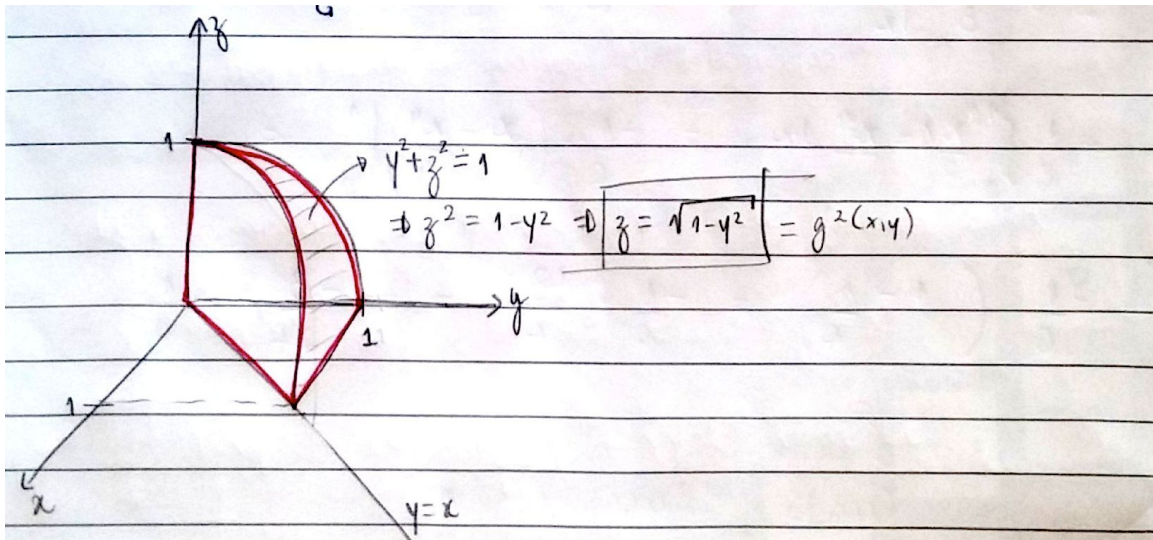 z
1
y² + z² = 1
⇒ z² = 1-y² ⇒ z = √1-y² = g²(x,y)
y
1
1
x
y=x